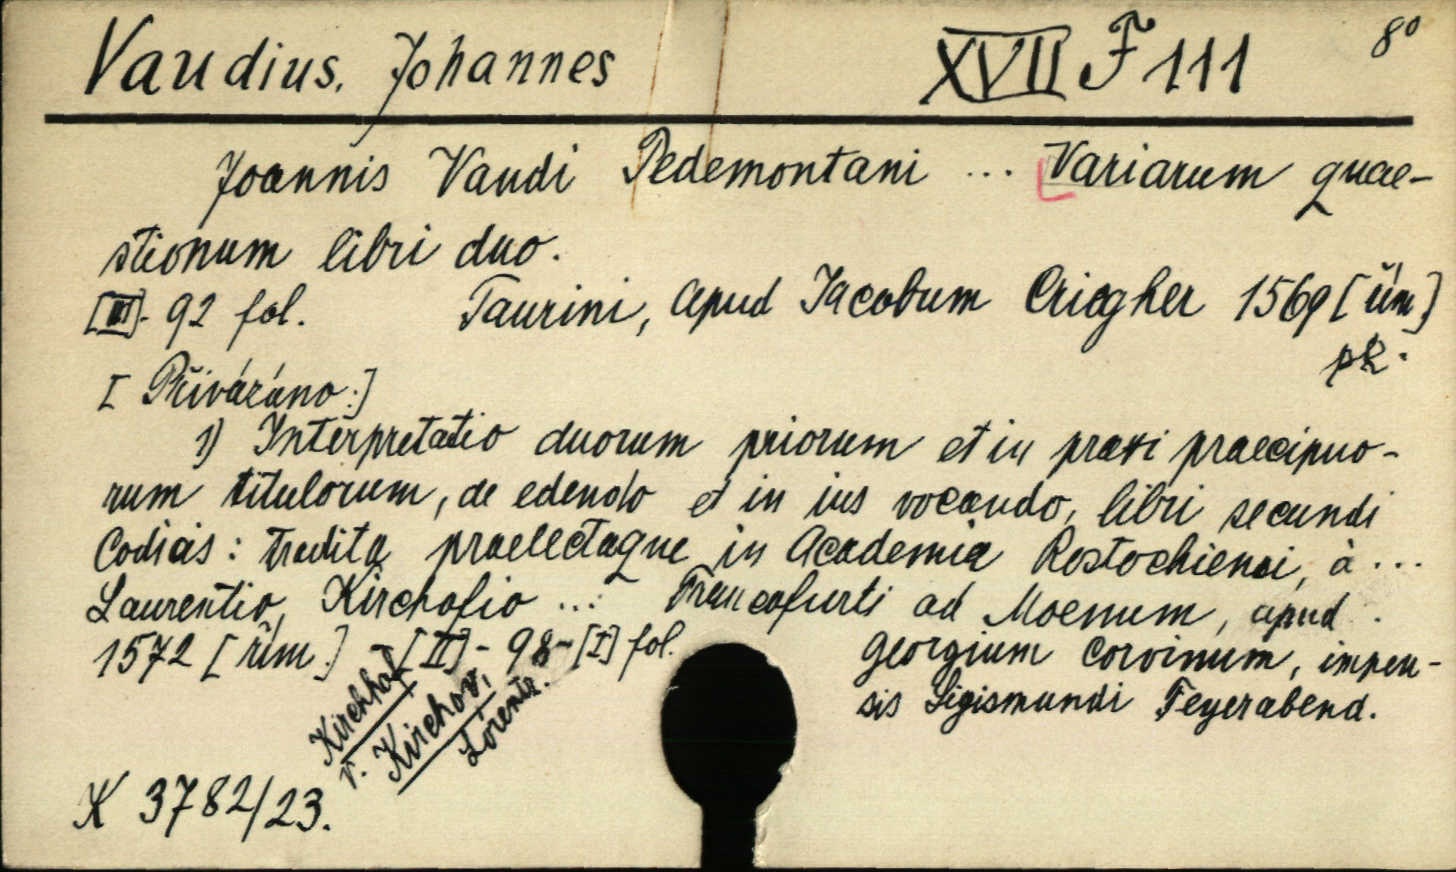 Vaudius, Johannes XVII F 111 8°
Joannis Vaudi Pedemontani ... Variarum quae-
stionum libri duo.
[III]- 92 fol. Taurini, apud Iacobum Criegher 1569 [řím.]
pk.
[Přivázáno:]
1) Interpretatio duorum priorum et in praxi praecipuo-
rum titulorum, de edendo et in ius vocando, libri secundi
Codicis: tradita praelectaque in Academia Rostochiensi, à ...
Laurentio Kirchofio ... Francofurti ad Moenum, apud
1572 [řím.] [II]- 98-[I] fol. Georgium Corvinum, impen-
sis Sigismundi Feyerabend.
Kirchhof
v. Kirchov,
Lorentz.
K 3782/23.